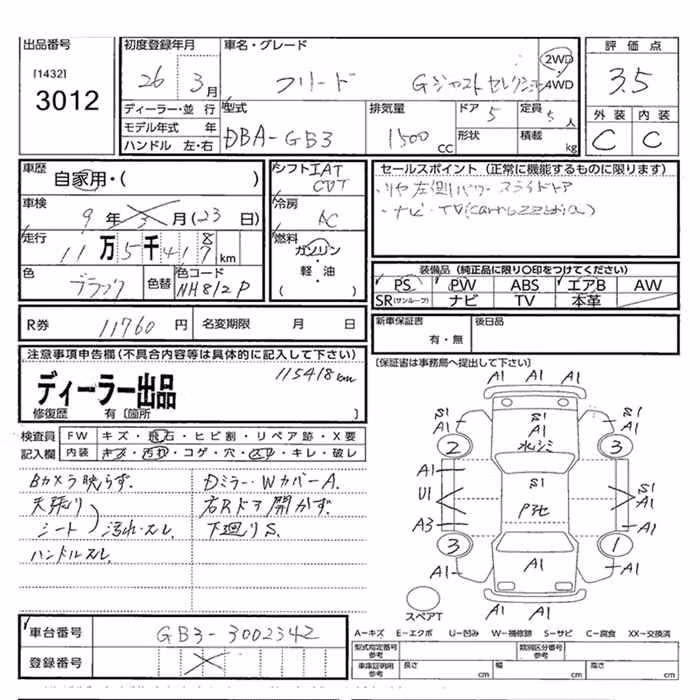 出品番号 初度登録年月 車名・グレード 評価点
[1432]
3012
26年 3月 フリード Gジャストセレクション 2WD 4WD 3.5
ディーラー・並行 型式 排気量 ドア 5 定員 5人 外装 内装
モデル年式 年 DBA-GB3 1500cc 形状 積載 kg C C
ハンドル 左・右
車歴 自家用・( ) シフト IAT CVT セールスポイント (正常に機能するものに限ります)
・リヤ左側パワースライドドア
車検 9年 3月(23日) 冷房 AC ・ナビ・TV(carrozzeria)
走行 11万5千418km 燃料 ガソリン・軽・油( )
装備品(純正品に限り○印をつけてください)
色 ブラック 色替 色コード NH812P PS PW ABS エアB AW
SR(サンルーフ) ナビ TV 本革
R券 11760円 名変期限 月 日 新車保証書 有・無 後日品
注意事項申告欄(不具合内容等は具体的に記入して下さい) [保証書は事務局へ提出して下さい]
115418km
ディーラー出品
修復歴 有 [箇所 ]
検査員 FW キズ・飛石・ヒビ割・リペア跡・X要
記入欄 内装 キズ・汚れ・コゲ・穴・スレ・キレ・破レ
Bカメラ映らず. Dミラー・WカバーA.
天張り 右Rドア開かず.
シート 汚れ・スレ. 下廻りS.
ハンドルスレ.
A1 A1 A1
S1 A1 S1 A1 S1 A1
2 水シミ 3
A1 S1 S1
U1 P地 A1
A3
3 1
A1 A1 A1
スペアT
車台番号 GB3-3002342
登録番号
A-キズ E-エクボ U-凹み W-補修跡 S-サビ C-腐食 XX-交換済
型式指定番号 参考 類別区分番号 参考
車庫証明用 参考 長さ cm 幅 cm 高さ cm